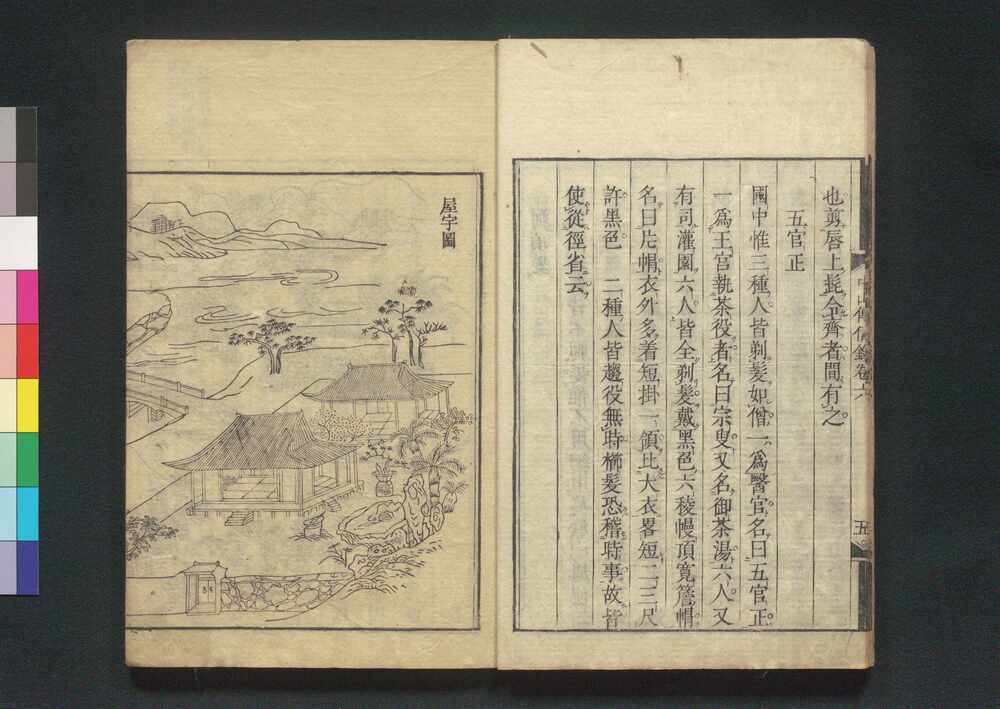 也剪唇上髭令齊者間有之
五官正
國中惟三種人皆剃髮如僧一爲醫官名曰五官正
一爲王宮執茶役者名曰宗叟又名御茶湯六人又
有司灌園六人皆全剃髮戴黑色六稜幔頂寬簷帽
名曰片帽衣外多着短掛一領比大衣畧短二三尺
許黑色　三種人皆趨役無時櫛髮恐稽時事故皆
使從徑省云
中山傳信錄卷六
五
屋宇圖